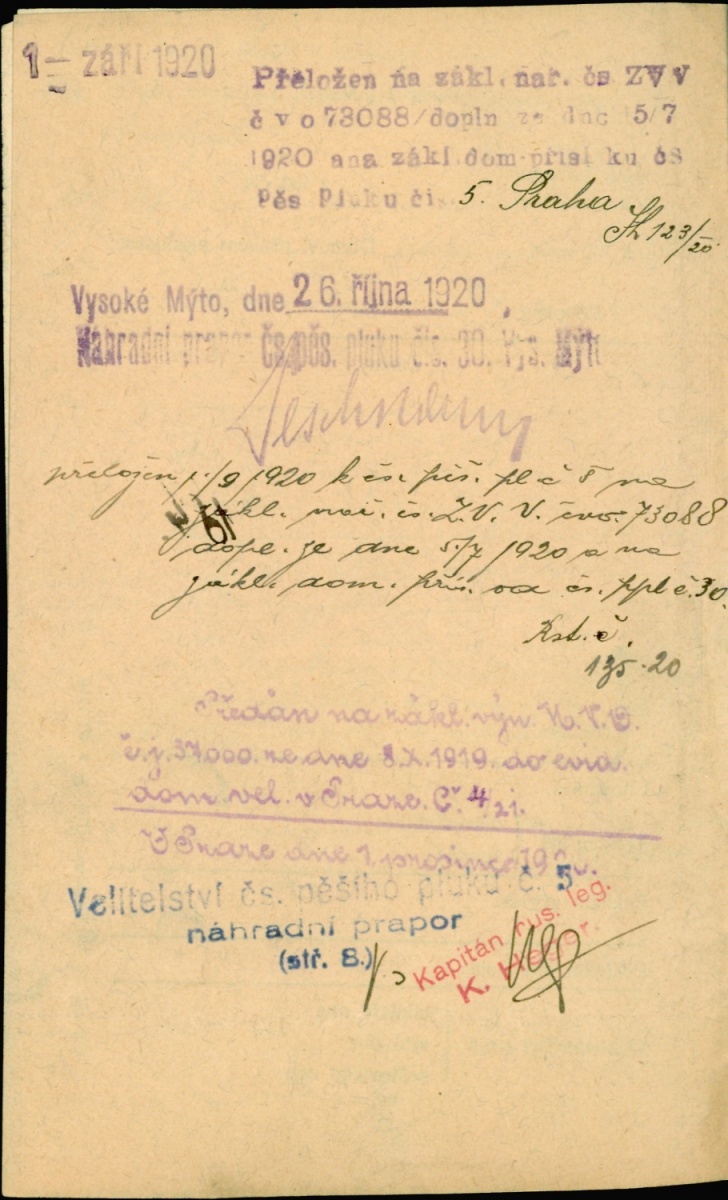 1 – září 1920
Přeložen na zákl. nař. čs ZVV
č v o 73088/dopln ze dne 15/7
1920 a na zákl dom přísl ku čs
pěs pluku čís. 5. Praha
123/20
Vysoké Mýto, dne 26. října 1920
Náhradní prapor čs. pěs. pluku čís. 30. Vys. Mýto
přeložen 1./9 1920 k čs. pěš. pl č 5 na
zákl. nař. čs. Z. V. V. čvo. 73088
dopl. ze dne 5./7 1920 a na
zákl. dom. přís. od čs. ppl č. 30.
135.20
Předán na zákl. výn.
č. j. 37000. ze dne 8.X.1919. do evid.
dom. vel. v Praze. Č. 4/21.
V Praze dne 1. prosince 1920.
Velitelství čs. pěšího pluku č. 5
náhradní prapor
(stř. 8.)
Kapitán rus. leg.
K. Heger.